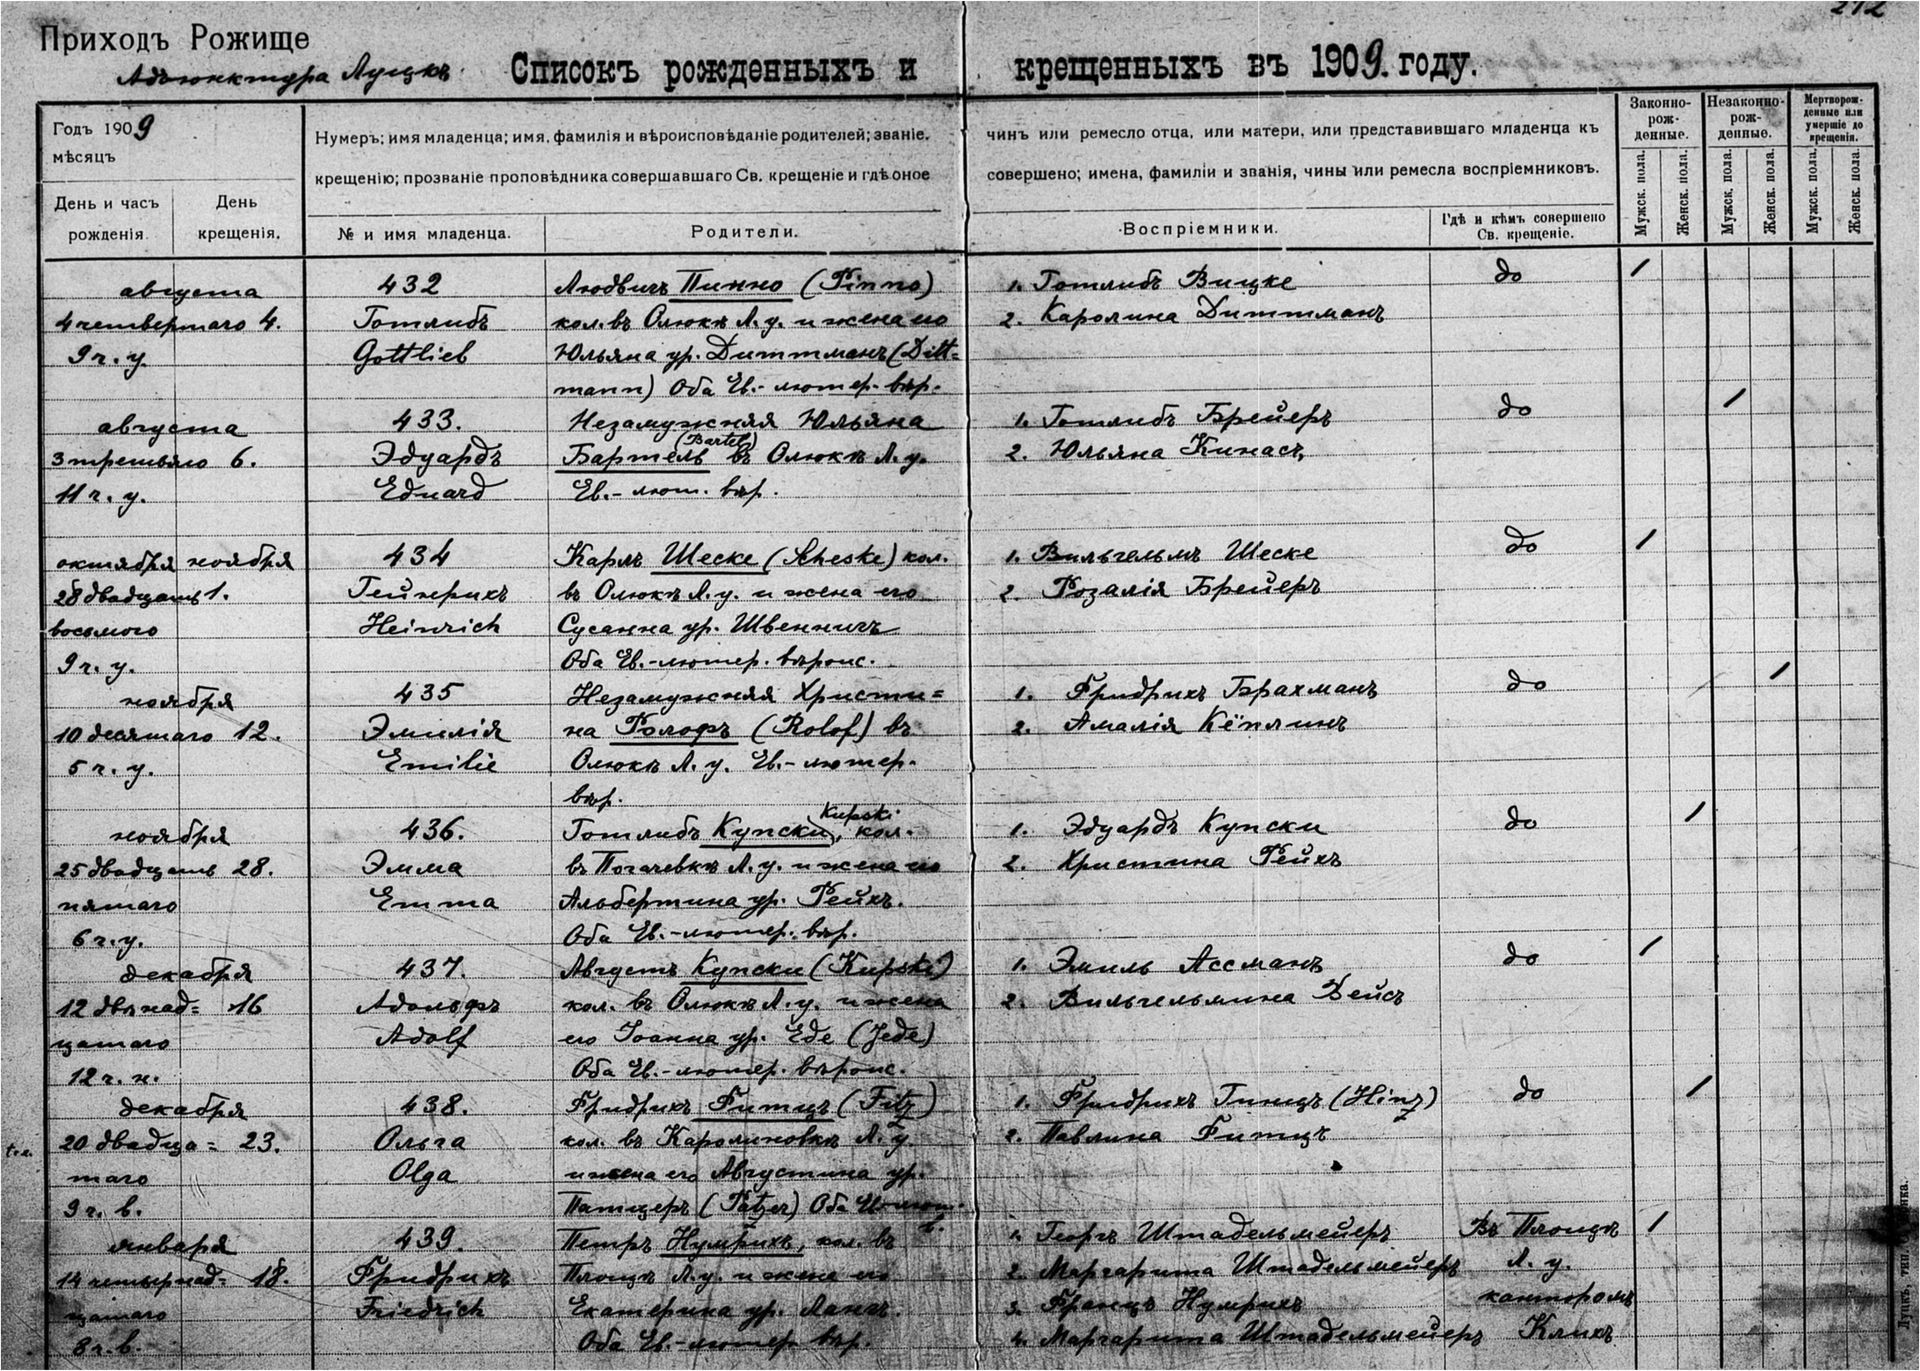 Приходъ Рожище
Адъюнктура Луцкъ
Списокъ рожденныхъ и крещенныхъ въ 1909. году.
Годъ 1909
мѣсяцъ
День и часъ рожденія.
День крещенія.
Нумеръ; имя младенца; имя, фамилія и вѣроисповѣданіе родителей; званіе, чинъ или ремесло отца, или матери, или представившаго младенца къ
крещенію; прозваніе проповѣдника совершавшаго Св. крещеніе и гдѣ оное совершено; имена, фамиліи и званія, чины или ремесла воспріемниковъ.
№ и имя младенца.
Родители.
Воспріемники.
Гдѣ и кѣмъ совершено Св. крещеніе.
Законно-рож-денные.
Незаконно-рож-денные.
Мертворож-денные или умершіе до крещенія.
Мужск. пола.
Женск. пола.
Мужск. пола.
Женск. пола.
Мужск. пола.
Женск. пола.
августа
4 четвертаго 4.
9 ч. у.
432
Готлибъ
Gottlieb
Людвигъ Пинно (Pinno)
кол. въ Олюкѣ Л. у. и жена его
Юльяна ур. Диттманъ (Ditt=
mann) Оба Ев.-лютер. вѣр.
1. Готлибъ Вицке
2. Каролина Диттманъ
до
августа
3 третьяго 6.
11 ч. у.
433.
Эдуардъ
Eduard
Незамужняя Юльяна
(Bartel)
Бартель въ Олюкѣ Л. у.
Ев.-лют. вѣр.
1. Готлибъ Брейеръ
2. Юльяна Кинасъ
до
октября ноября
28 двадцать 1.
восьмого
9 ч. у.
434
Гейнрихъ
Heinrich
Карлъ Шеске (Scheske) кол.
въ Олюкѣ Л. у. и жена его
Сусанна ур. Швеннигъ
Оба Ев.-лютер. вѣроис.
1. Вильгельмъ Шеске
2. Розалія Брейеръ
до
ноября
10 десятаго 12.
5 ч. у.
435
Эмилія
Emilie
Незамужняя Христи=
на Ролофъ (Rolof) въ
Олюкѣ Л. у. Ев.-лютер.
вѣр.
1. Фридрихъ Брахманъ
2. Амалія Кёплинъ
до
ноября
25 двадцать 28.
пятаго
6 ч. у.
436.
Эмма
Emma
Kupski
Готлибъ Купски, кол.
въ Погачевкѣ Л. у. и жена его
Альбертина ур. Рейхъ.
Оба Ев.-лютер. вѣр.
1. Эдуардъ Купски
2. Христина Рейхъ
до
декабря
12 двѣнад= 16
цатаго
12 ч. н.
437.
Адольфъ
Adolf
Августъ Купски (Kupski)
кол. въ Олюкѣ Л. у. и жена
его Іоанна ур. Еде (Jede)
Оба Ев.-лютер. вѣроис.
1. Эмиль Ассманъ
2. Вильгельмина Вейсъ
до
декабря
20 двадца= 23.
таго
9 ч. в.
438.
Ольга
Olga
Фридрихъ Фитцъ (Fitz)
кол. въ Каролиновкѣ Л. у.
и жена его Августина ур.
Патцеръ (Patzer) Оба
1. Фридрихъ Гинцъ (Hinz)
2. Павлина Фитцъ
до
января
14 четырнад= 18.
цатаго
8 ч. в.
439.
Фридрихъ
Friedrich
Петръ Нумрихъ, кол. въ
Площѣ Л. у. и жена его
Екатерина ур. Лангъ.
Оба Ев.-лютер. вѣр.
1. Георгъ Штадельмейеръ
2. Маргарита Штадельмейеръ
3. Францъ Нумрихъ
4. Маргарита Штадельмейеръ
Въ Площѣ
Л. у.
канторомъ
Кликъ